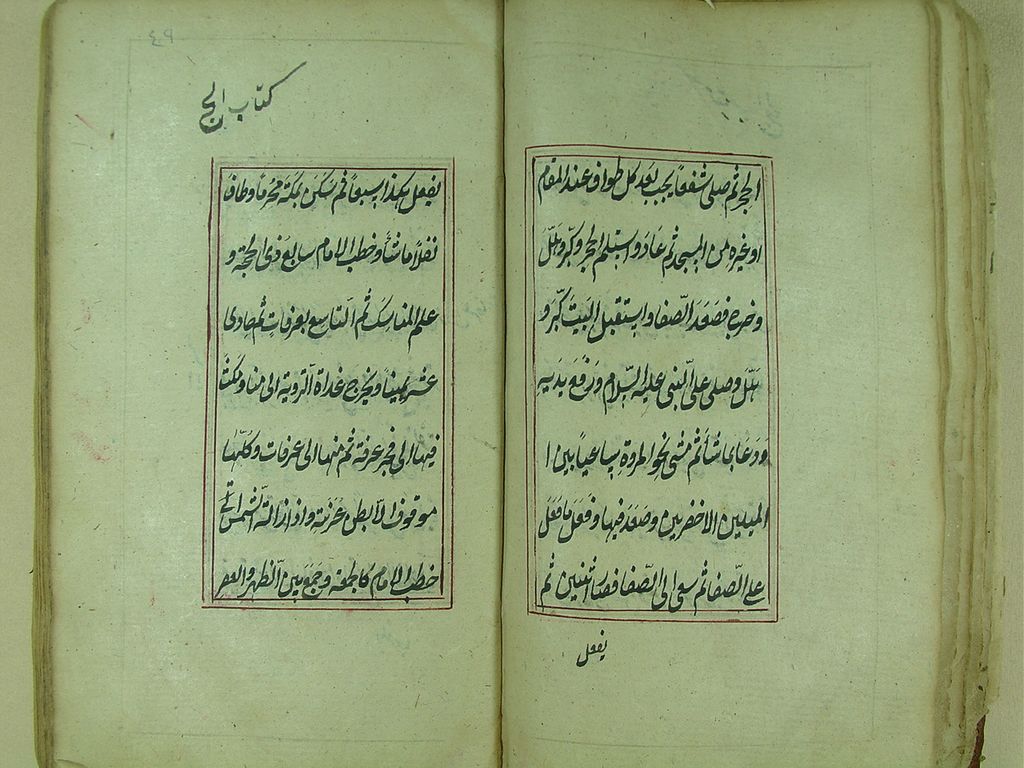 الحجر ثم صلى شفعاً يجب بعد كل طواف عند المقام
او غيره من المسجد ثم عاد واستلم الحجر وكبر وهلل
وخرج فصعد الصفا واستقبل البيت كبر و
هلل وصلى على النبى عليه السلام ورفع يديه
ودعا بما شأ ثم مشى نحو المروة ساعياً بين ا
الميلين الاخضرين وصعد فيها وفعل ما فعل
على الصفا ثم سعى الى الصفا فصار اثنين ثم
يفعل
٤٩
كتاب الحج
يفعل هكذا سبعاً ثم سكن بمكة محرماً وطاف
نفلاً ما شأ وخطب الامام سابع ذى الحجة و
علم المناسك ثم التاسع بعرفات ثم حادى
عشر بمينا ويخرج غداة التروية الى منا ومكث
فيها الى فجر عرفة ثم منها الى عرفات وكلها
موقوف الا بطن عرنة واذا زالت الشمس
خطب الامام كالجمعة وجمع بين الظهر والعصر